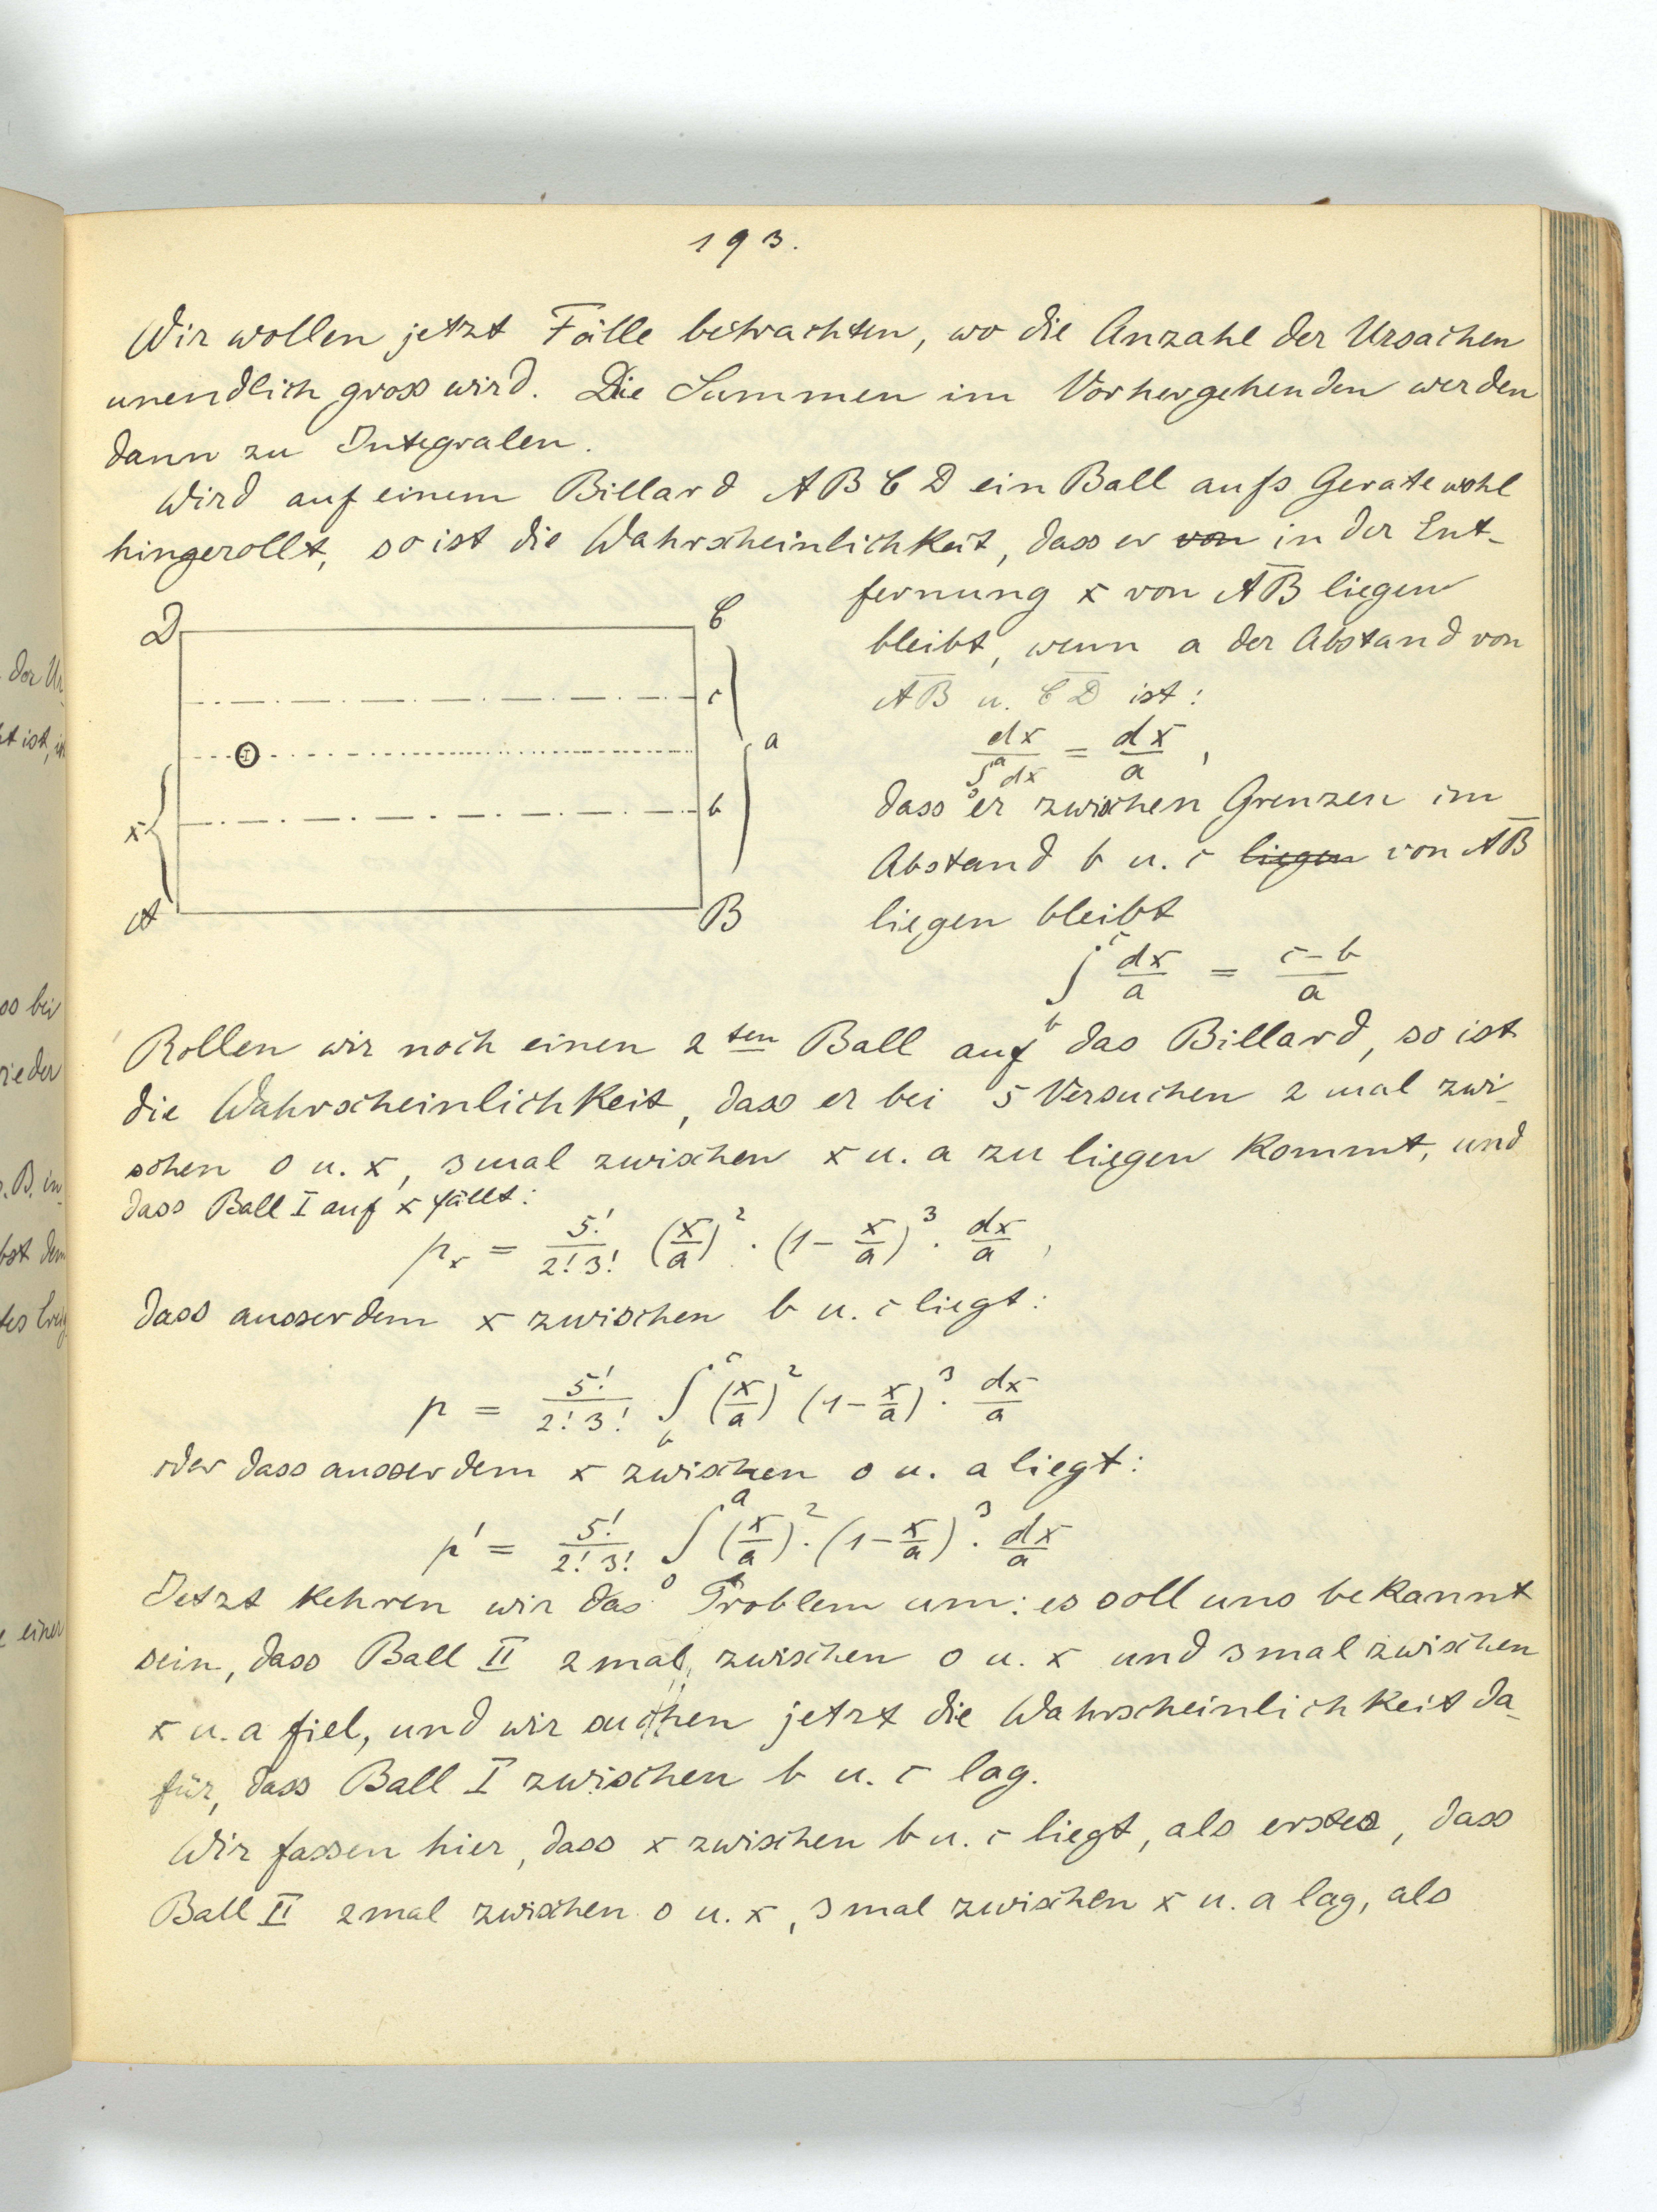 193.
Wir wollen jetzt Fälle betrachten, wo die Anzahl der Ursachen
unendlich gross wird. Die Summen im Vorhergehenden werden
dann zu Integralen.
Wird auf einem Billard A B C D ein Ball aufs Geratewohl
hingerollt, so ist die Wahrscheinlichkeit, dass er von in der Ent-
fernung x von AB liegen
bleibt, wenn a der Abstand von
AB u. CD ist:
dx / ∫₀ᵃ dx = dx / a ,
dass er zwischen Grenzen im
Abstand b u. c liegen von AB
liegen bleibt
∫_b^c dx/a = (c-b)/a
D C
c
a
I
b
x
A B
Rollen wir noch einen 2ten Ball auf das Billard, so ist
die Wahrscheinlichkeit, dass er bei 5 Versuchen 2 mal zwi-
schen 0 u. x, 3 mal zwischen x u. a zu liegen kommt, und
dass Ball I auf x fällt:
p_x = 5!/(2! 3!) (x/a)² · (1 - x/a)³ · dx/a ,
dass ausserdem x zwischen b u. c liegt:
p = 5!/(2! 3!) ∫_b^c (x/a)² (1 - x/a)³ · dx/a
oder dass ausserdem x zwischen 0 u. a liegt:
p' = 5!/(2! 3!) ∫₀ᵃ (x/a)² · (1 - x/a)³ · dx/a
Jetzt kehren wir das Problem um: es soll uns bekannt
sein, dass Ball II 2 mal zwischen 0 u. x und 3 mal zwischen
x u. a fiel, und wir suchen jetzt die Wahrscheinlichkeit da-
für, dass Ball I zwischen b u. c lag.
Wir fassen hier, dass x zwischen b u. c liegt, als erstes, dass
Ball II 2 mal zwischen 0 u. x, 3 mal zwischen x u. a lag, als
der Ur-
ist,
bei
wieder
z. B. in-
dem
einer